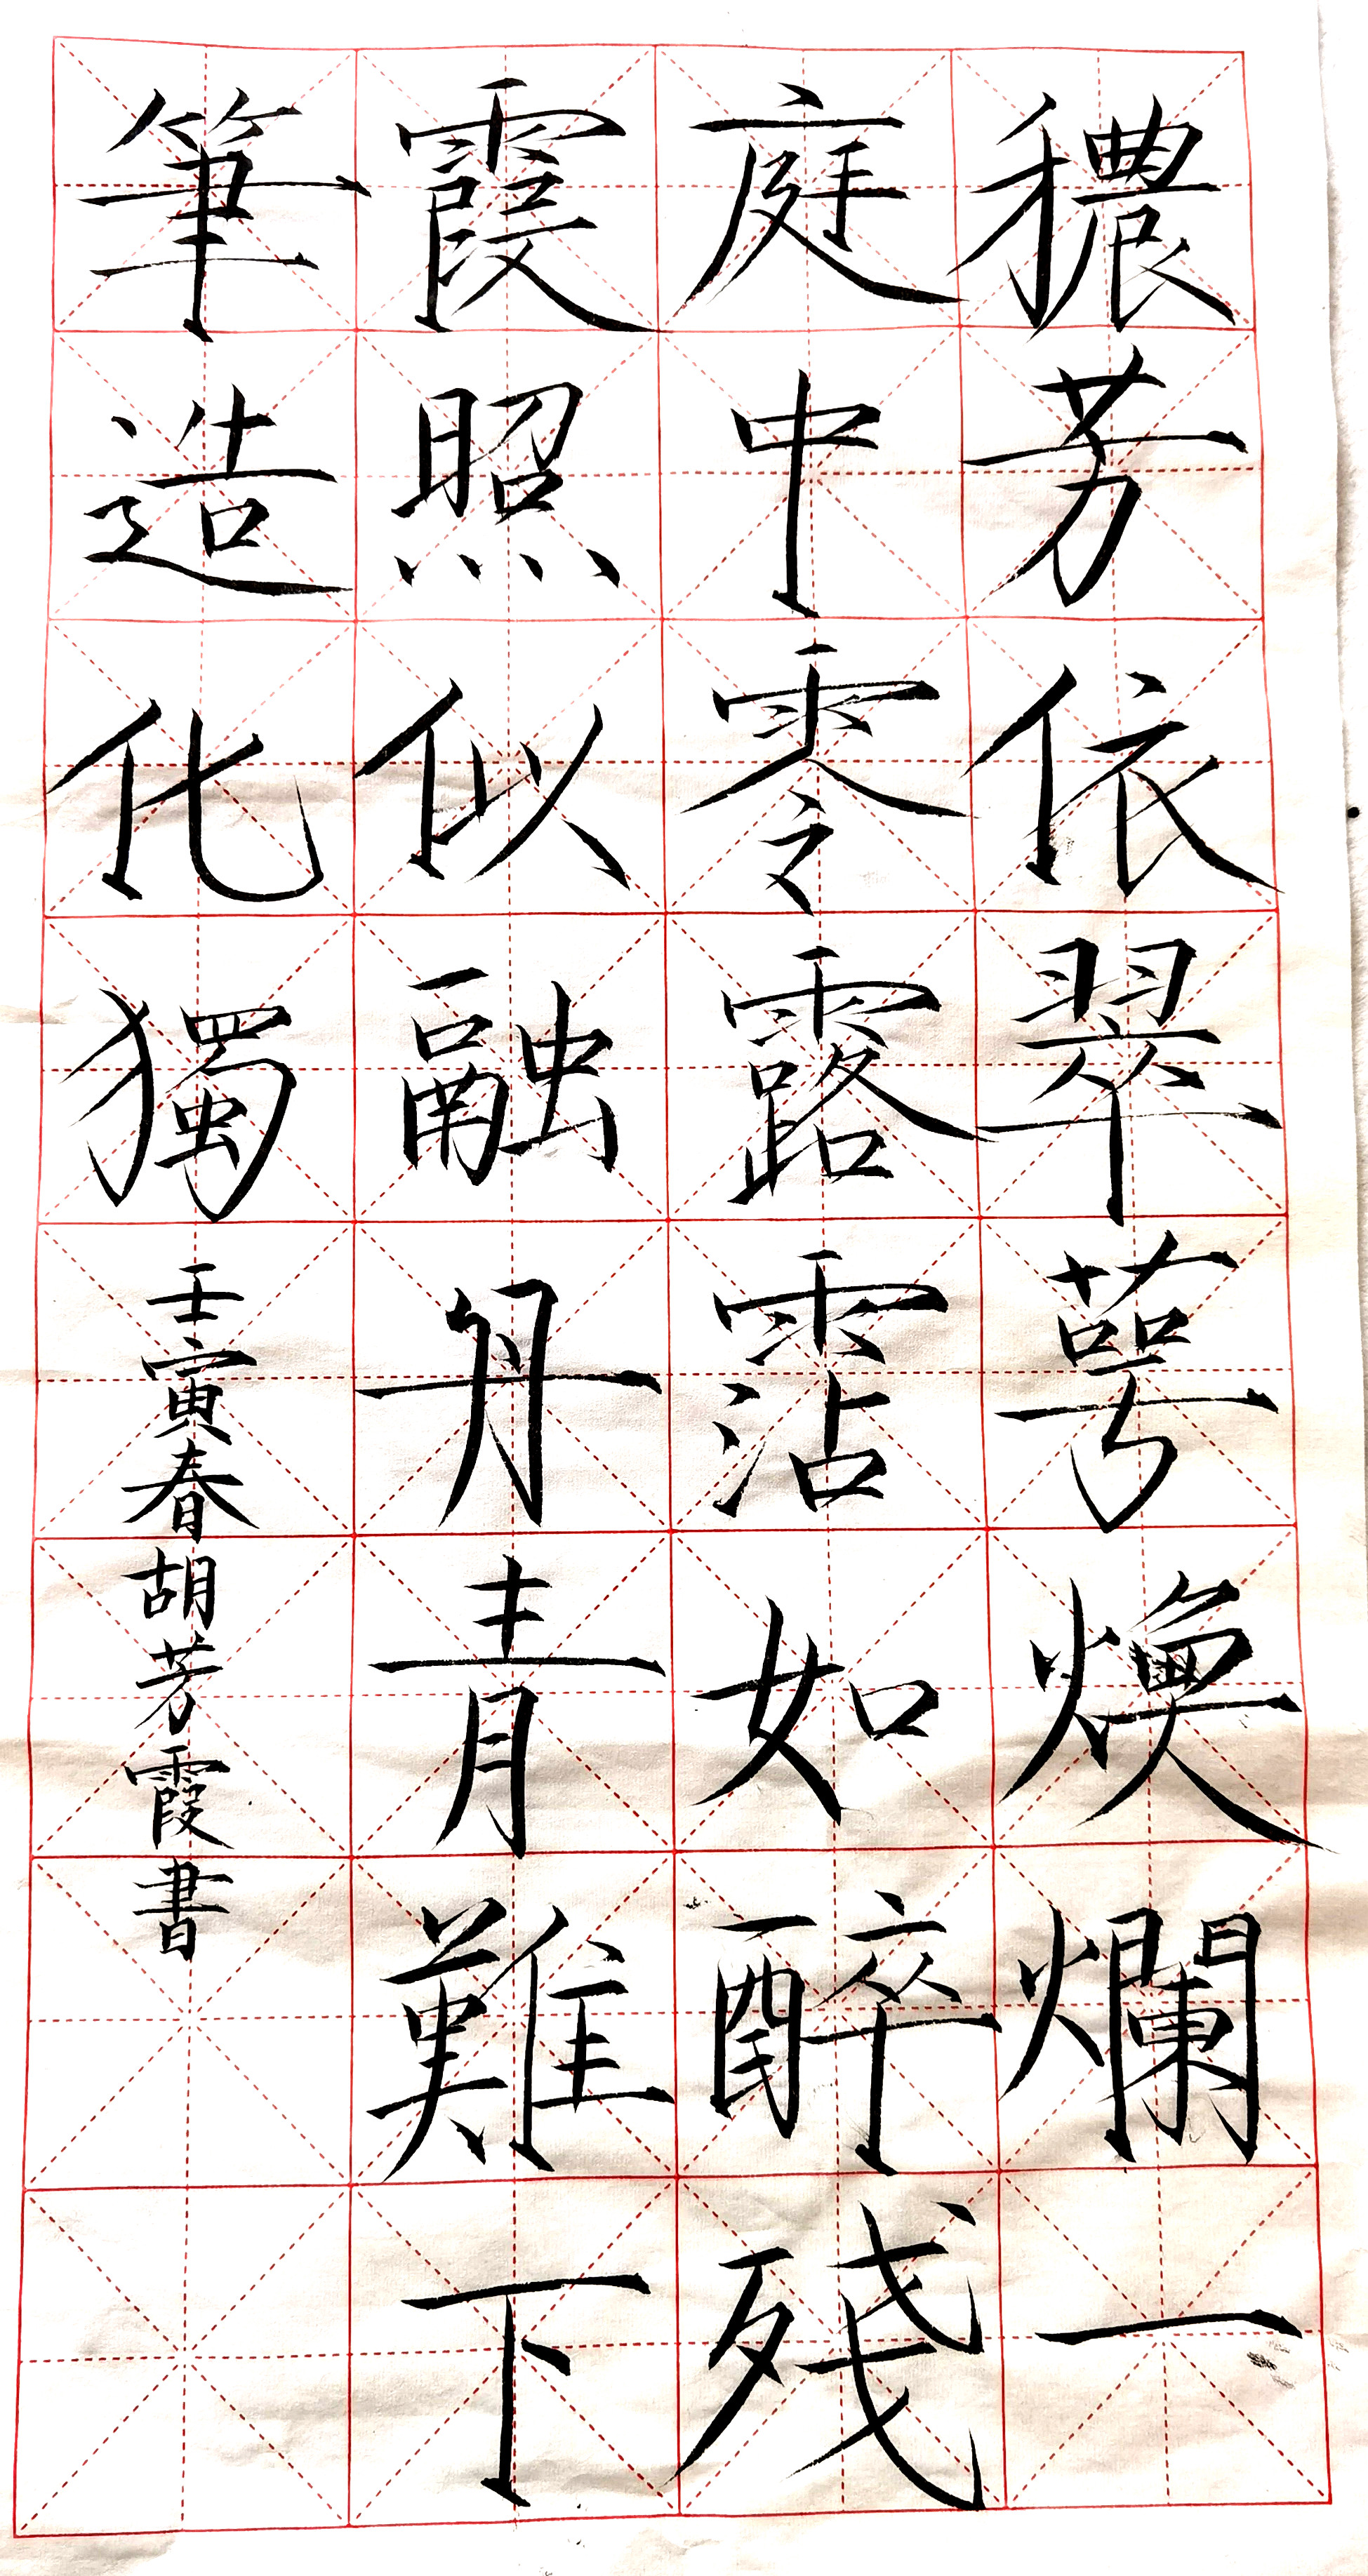 穠芳依翠萼煥爛一
庭中零露霑如醉殘
霞照似融丹青難下
筆造化獨
壬寅春胡芳霞書